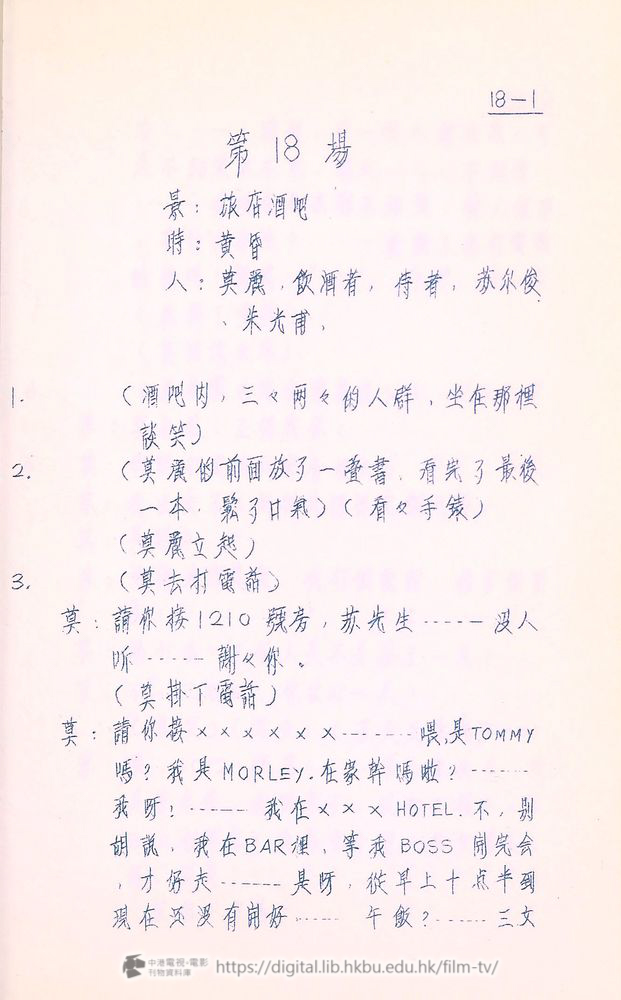 18-1
第 18 場
景：旅店酒吧
時：黄昏
人：莫麗，飲酒者，侍者，苏尔俊
、朱光甫，
1. （酒吧内，三々两々的人群，坐在那裡
談笑）
2. （莫麗的前面放了一叠書，看完了最後
一本，鬆了口氣）（看々手錶）
（莫麗立起）
3. （莫去打電話）
莫：請你接1210號房，苏先生----- 没人
听 ----- 謝々你。
（莫掛下電話）
莫：請你接××××××-------喂，是TOMMY
嗎？我是MORLEY.在家幹嗎啦？------
我呀！----- 我在×××HOTEL.不，别
胡說，我在BAR裡，等我BOSS開完会
，才好走------是呀，從早上十点半到
現在还没有開好----- 午飯？------三文
中港電視·電影
刊物資料庫
https://digital.lib.hkbu.edu.hk/film-tv/